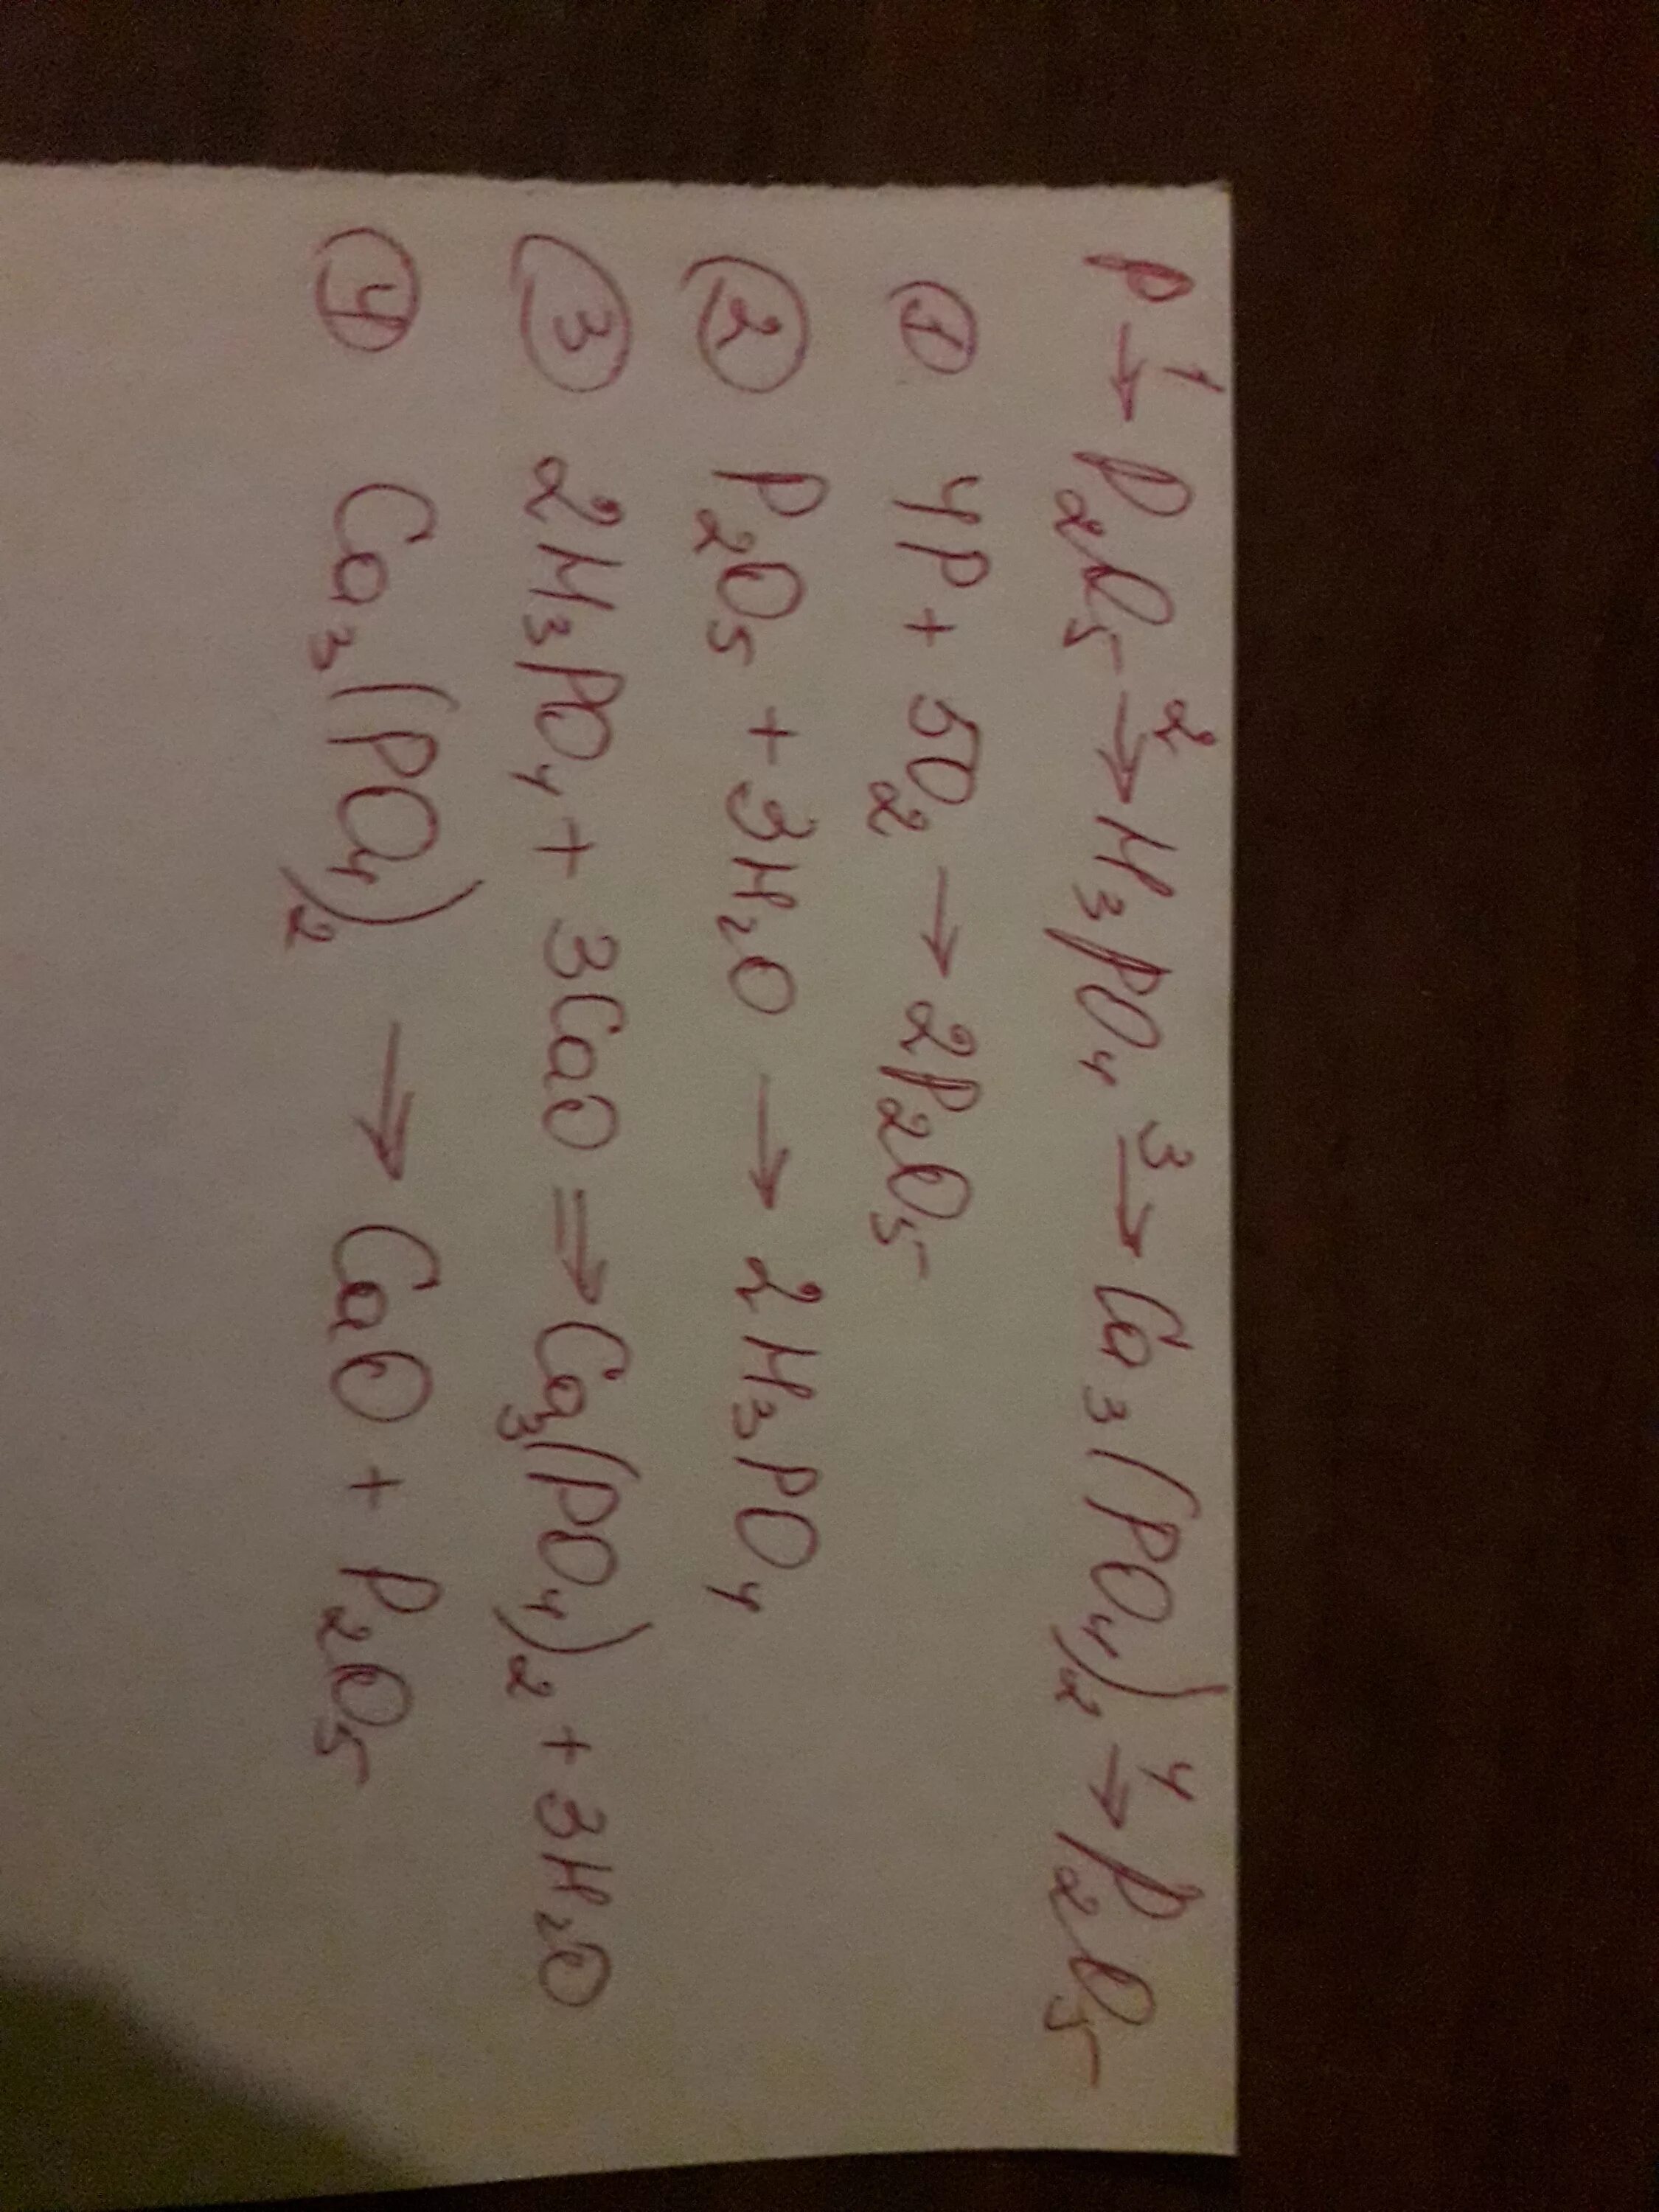 P →¹ P₂O₅ →² H₃PO₄ →³ Ca₃(PO₄)₂ →⁴ P₂O₅
① 4P + 5O₂ → 2P₂O₅
② P₂O₅ + 3H₂O → 2H₃PO₄
③ 2H₃PO₄ + 3CaO ⇒ Ca₃(PO₄)₂ + 3H₂O
④ Ca₃(PO₄)₂ → CaO + P₂O₅